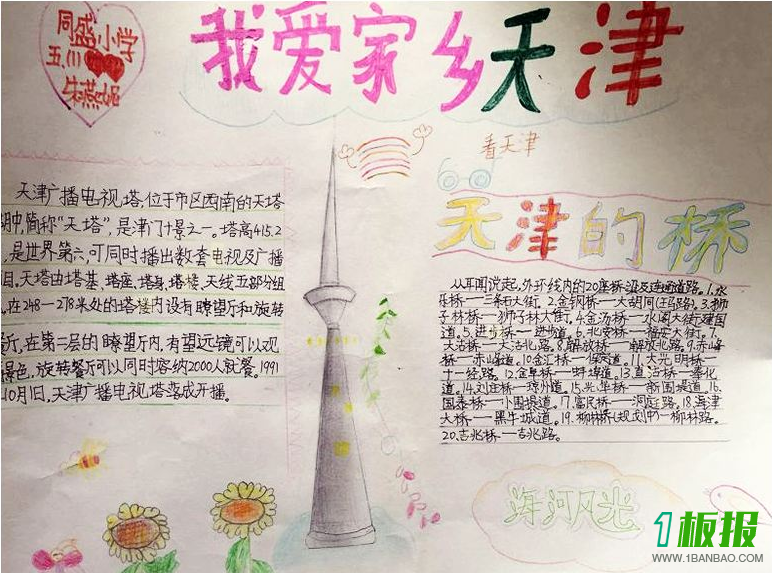 同盛小学
五.(1)
朱燕妮
我爱家乡天津
看天津
天津广播电视塔,位于市区西南的天塔
湖中,简称“天塔”,是津门十景之一。塔高415.2
,是世界第六,可同时播出数套电视及广播
目,天塔由塔基、塔座、塔身、塔楼、天线五部分组
,在248一278米处的塔楼内设有瞭望厅和旋转
厅,在第二层的瞭望厅内,有望远镜可以观
景色,旋转餐厅可以同时容纳2000人就餐。1991
10月1日,天津广播电视塔落成开播。
天津的桥
外环线内的20座桥梁及连通道路。1.
乐桥一三条石大街。2.金钢桥一大胡同(中马路)。3.狮
子林桥一狮子林大街。4.金汤桥一水阁大街建国
道。5.进步桥一进步道。6.北安桥一福安大街。7.
大沽桥一大沽北路。8.解放桥一解放北路。9.赤峰
桥一赤峰道。10.金汇桥一保定道。11.大光明桥一
十一经路。12.金阜桥一蚌埠道。13.直沽桥一奉化
道。14.刘庄桥一琼州道。15.光华桥一新围堤道。16.
国泰桥一小围堤道。17.富民桥一洞庭路。18.海津
大桥一黑牛城道。19.柳林桥(规划中)一柳林路。
20.吉兆桥一吉兆路。
海河风光
1板报
WWW.1BANBAO.COM